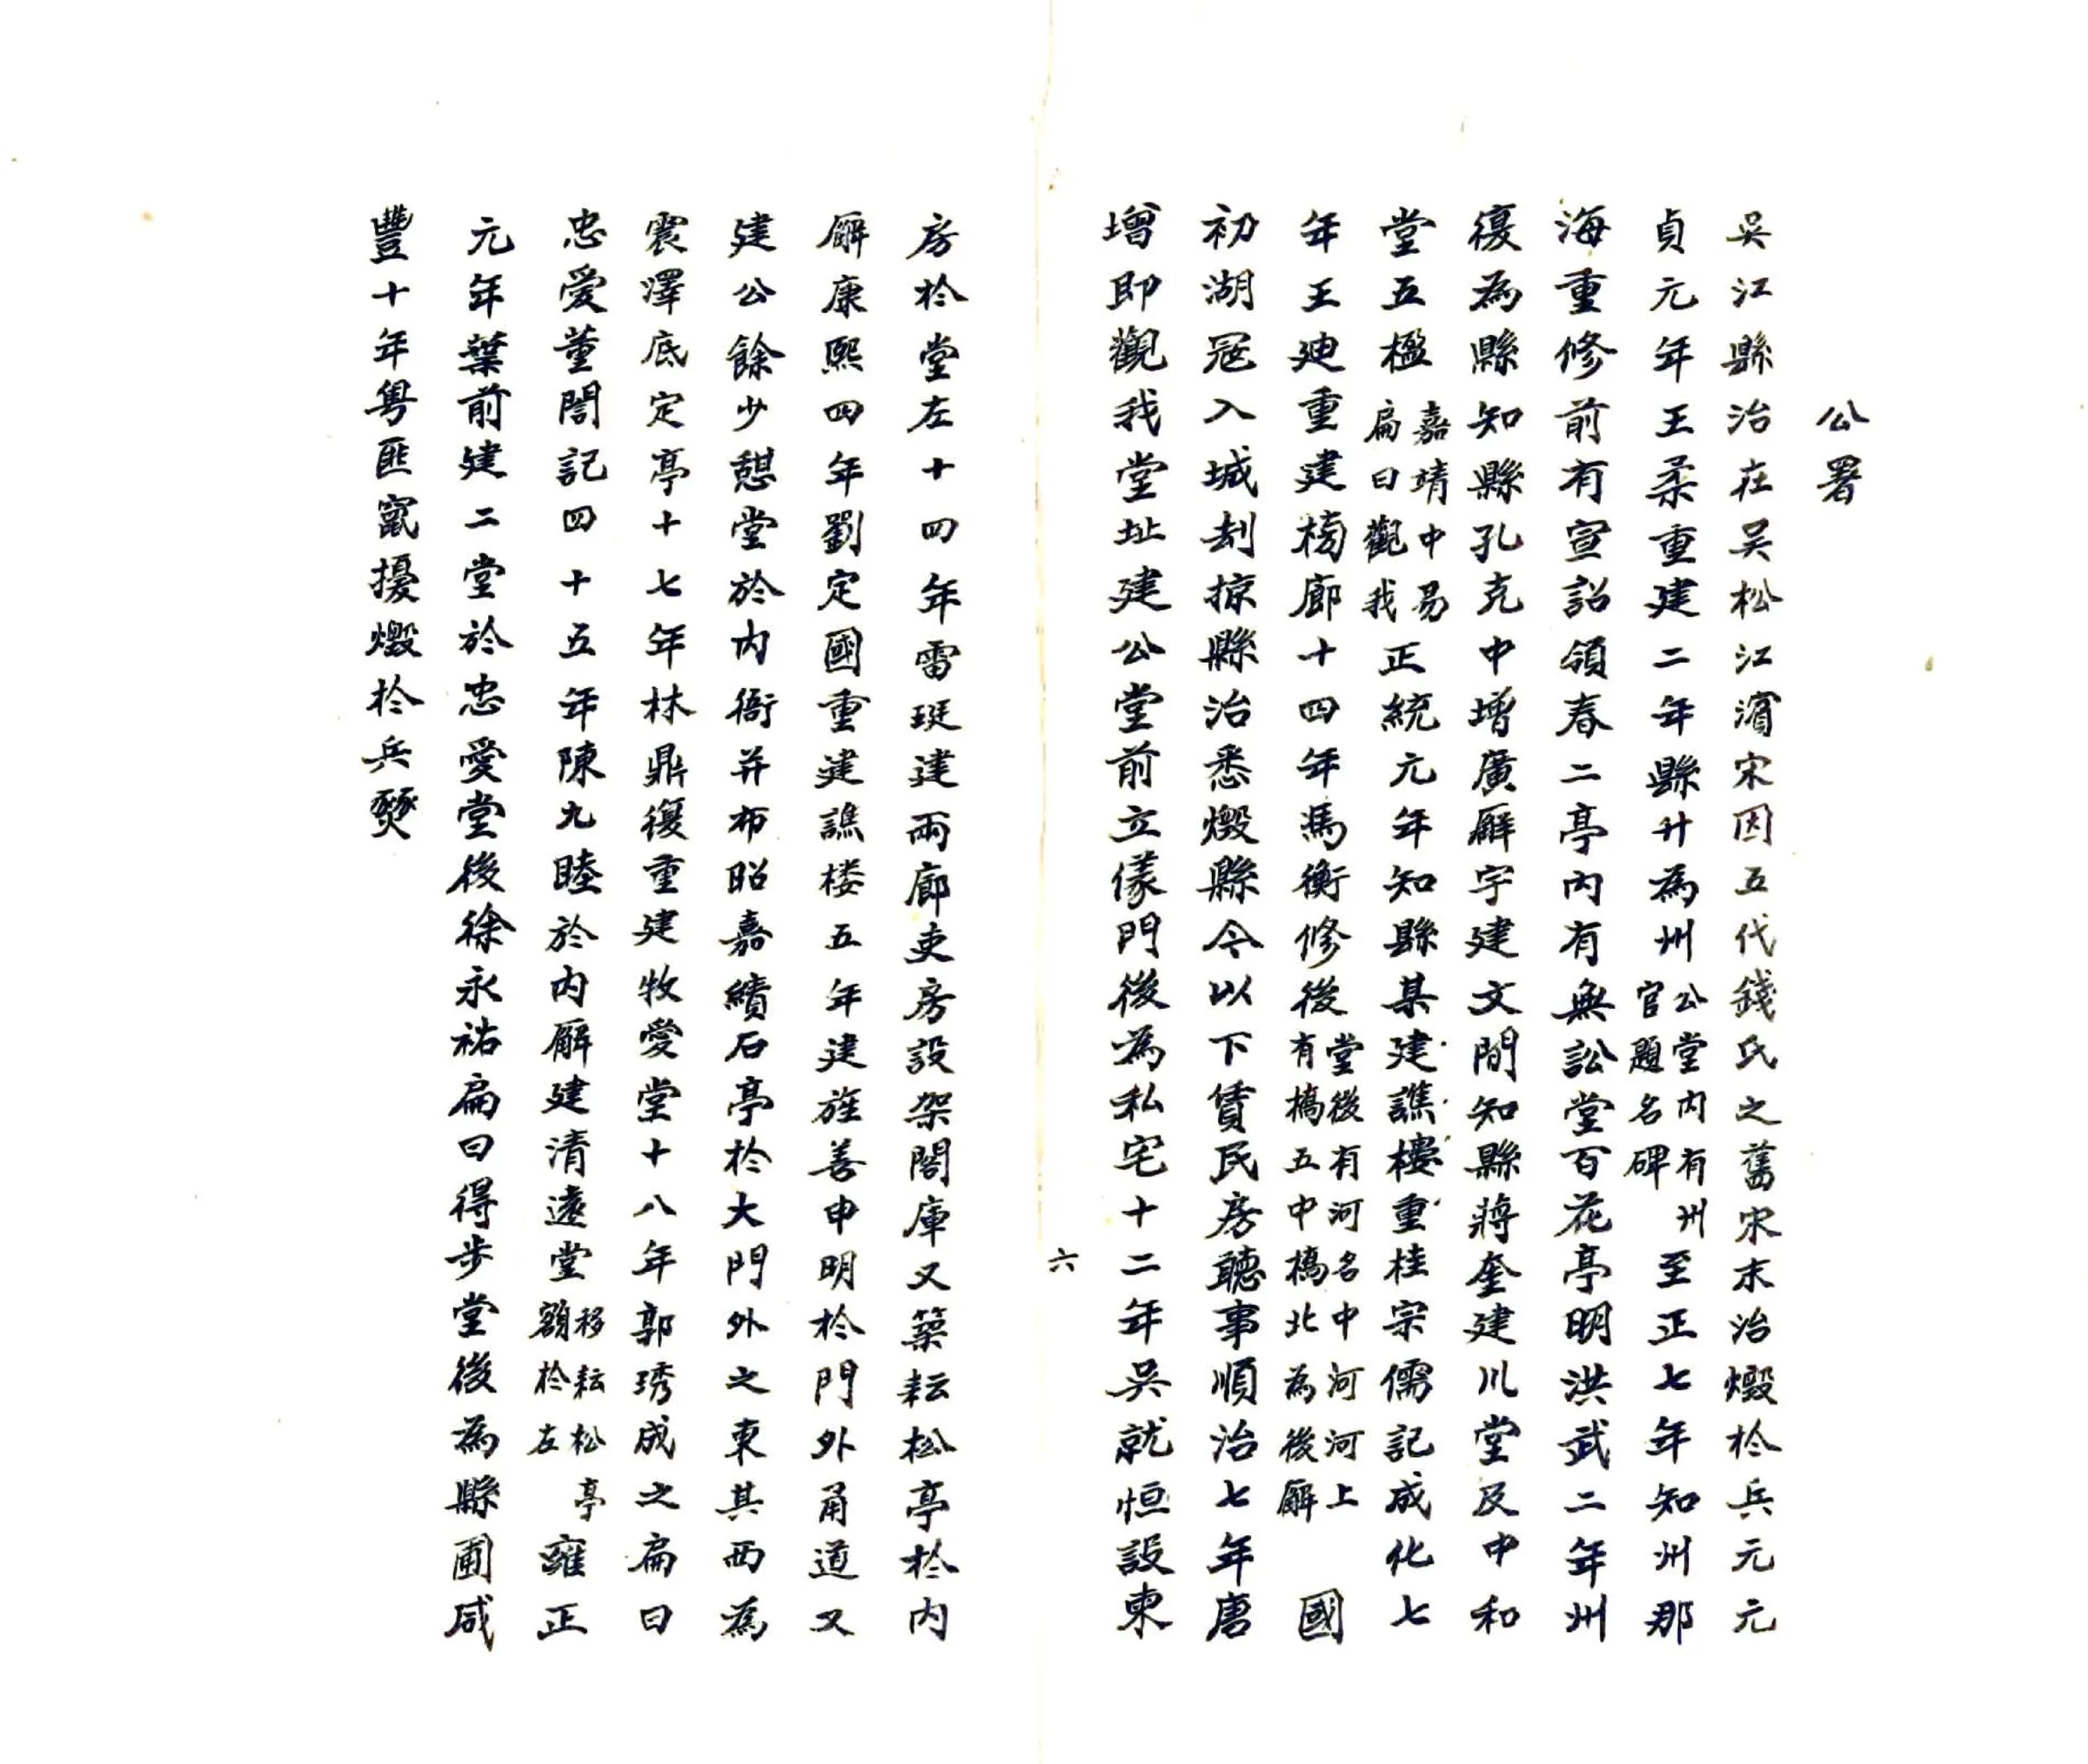 公署
吳江縣治在吴松江濱宋因五代錢氏之舊宋末治燬於兵元元
貞元年王柔重建二年縣升為州公堂内有州官題名碑至正七年知州那
海重修前有宣詔領春二亭内有無訟堂百花亭明洪武二年州
復為縣知縣孔克中增廣廨宇建文間知縣蔣奎建川堂及中和
堂五楹嘉靖中易扁曰觀我正統元年知縣某建譙樓重桂宗儒記成化七
年王迪重建廊十四年馮衡修後堂後有河名中河河上有橋五中橋北為後廨國
初湖冦入城刦掠縣治悉燬縣令以下賃民房聽事順治七年唐
增即觀我堂址建公堂前立儀門後為私宅十二年吳就恒設東
六
房於堂左十四年雷珽建兩廊吏房設架閣庫又築耘松亭於内
廨康熙四年劉定國重建譙楼五年建旌善申明於門外甬道又
建公餘少憩堂於内衙并布昭嘉績石亭於大門外之東其西為
震澤底定亭十七年林鼎復重建牧愛堂十八年郭琇成之扁曰
忠爱董誾記四十五年陳九睦於内廨建清遠堂移耘松亭額於左雍正
元年葉前建二堂於忠愛堂後徐永祐扁曰得步堂後為縣圃咸
豐十年粤匪竄擾燬於兵燹